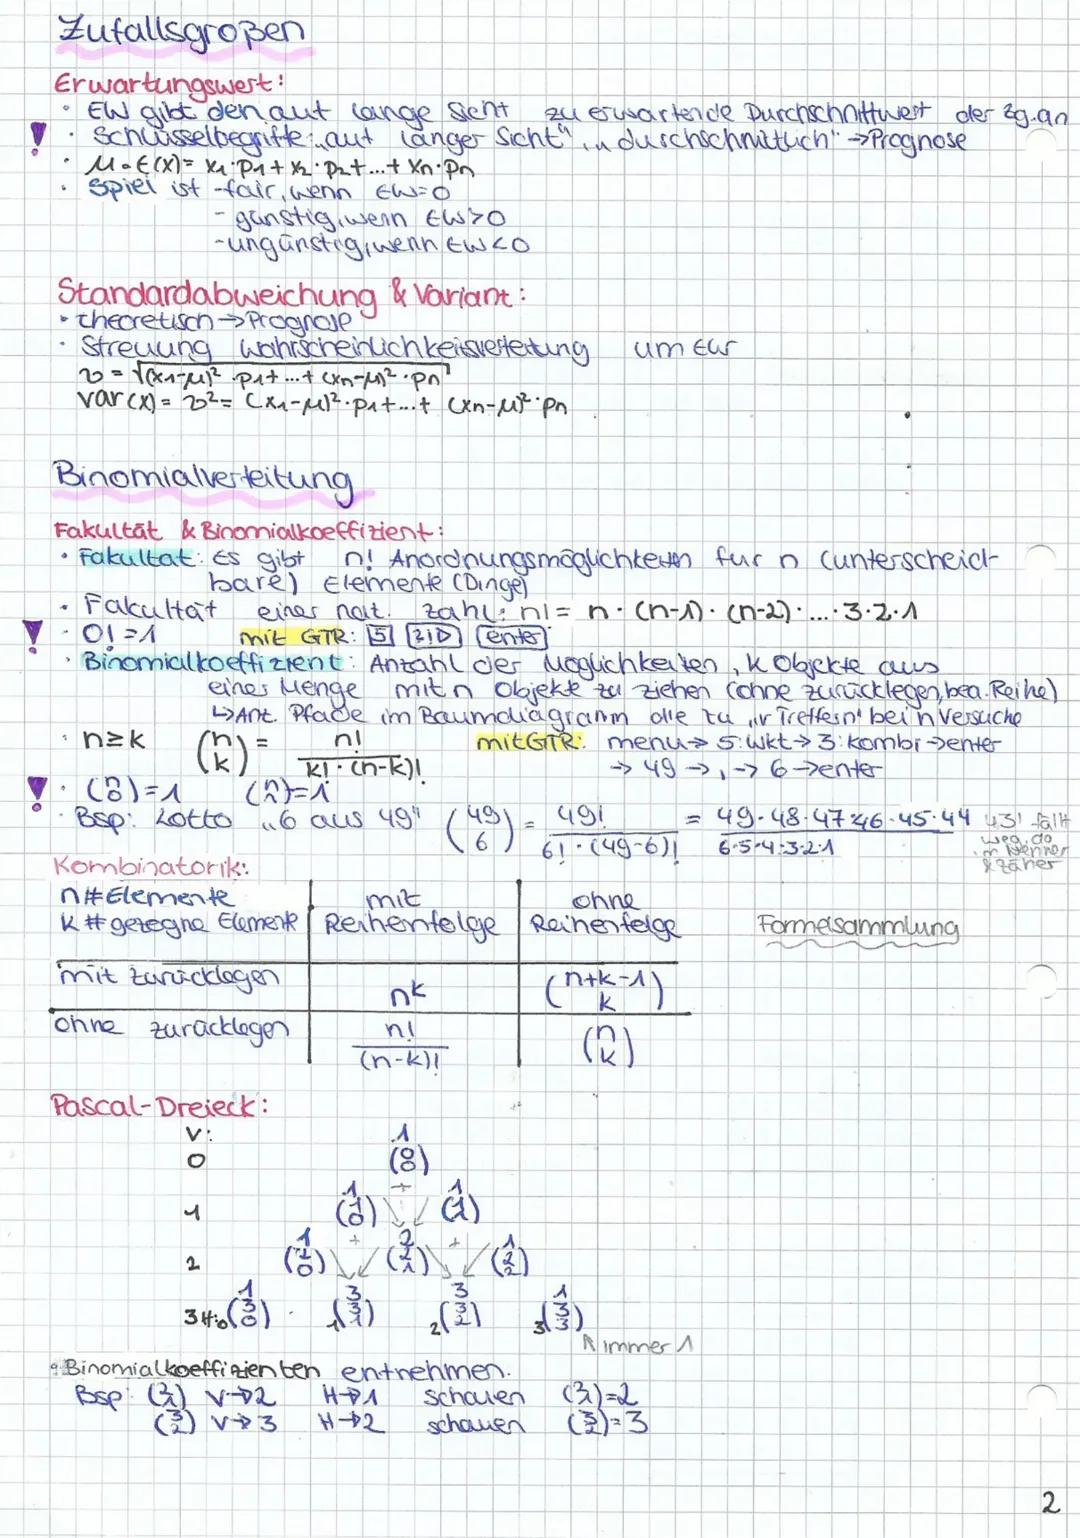 Zufallsgroßen
Erwartungswert:
• EW gibt den auf lange Sicht zu erwartende Durchschnittwert der Zg. an
! • Schlüsselbegriffe: „auf langer Sicht", „durchschnittlich" → Prognose
• μ = E(X) = x₁·p₁ + x₂·p₂ + ... + xn·pn
• Spiel ist - fair, wenn EW=0
- günstig, wenn EW>0
- ungünstig, wenn EW<0
Standardabweichung & Variant:
• theoretisch → Prognose
• Streuung Wahrscheinlichkeitsverteitung um EW
σ = √(x₁-μ)²·p₁+...+(xn-μ)²·pn
Var(X) = σ² = (x₁-μ)²·p₁+...+(xn-μ)²·pn
Binomialverteitung
Fakultät & Binomialkoeffizient:
• Fakultät: Es gibt n! Anordnungsmöglichkeiten für n (unterscheid-
bare) Elemente (Dinge)
• Fakultät einer nat. Zahl: n! = n·(n-1)·(n-2)·...·3·2·1
! • 0! = 1 mit GTR: [5] [?!▷] [enter]
• Binomialkoeffizient: Anzahl der Möglichkeiten, k Objekte aus
einer Menge mit n Objekte zu ziehen (ohne zurücklegen, bea. Reihe)
↳ Anz. Pfade im Baumdiagramm die zu „r Treffern" bei n Versuche
• n≥k (n k) = n! / k!·(n-k)! mit GTR: menu → 5: Wkt → 3: Kombi → enter
→ 49 → , → 6 → enter
! • (n 0) = 1 (n n) = 1
• Bsp: Lotto „6 aus 49" (49 6) = 49! / 6!·(49-6)! = 49·48·47·46·45·44 / 6·5·4·3·2·1 43! fällt
weg, da
in Nenner
& Zähler
Kombinatorik:
n # Elemente mit ohne
k # gezogne Elemente Reihenfolge Reihenfolge Formelsammlung
mit zurücklegen n^k (n+k-1 k)
ohne zurücklegen n! / (n-k)! (n k)
Pascal-Dreieck:
V: 1
0 (0 0)
+
1 1
1 (1 0) (1 1)
1 + 2 + 1
2 (2 0) (2 1) (2 2)
1 3 3 1
3 H: 0 (3 0) 1 (3 1) 2 (3 2) 3 (3 3)
↖ immer 1
• Binomialkoeffizienten entnehmen.
Bsp: (2 1) V→2 H→1 schauen (2 1)=2
(3 2) V→3 H→2 schauen (3 2)=3
2